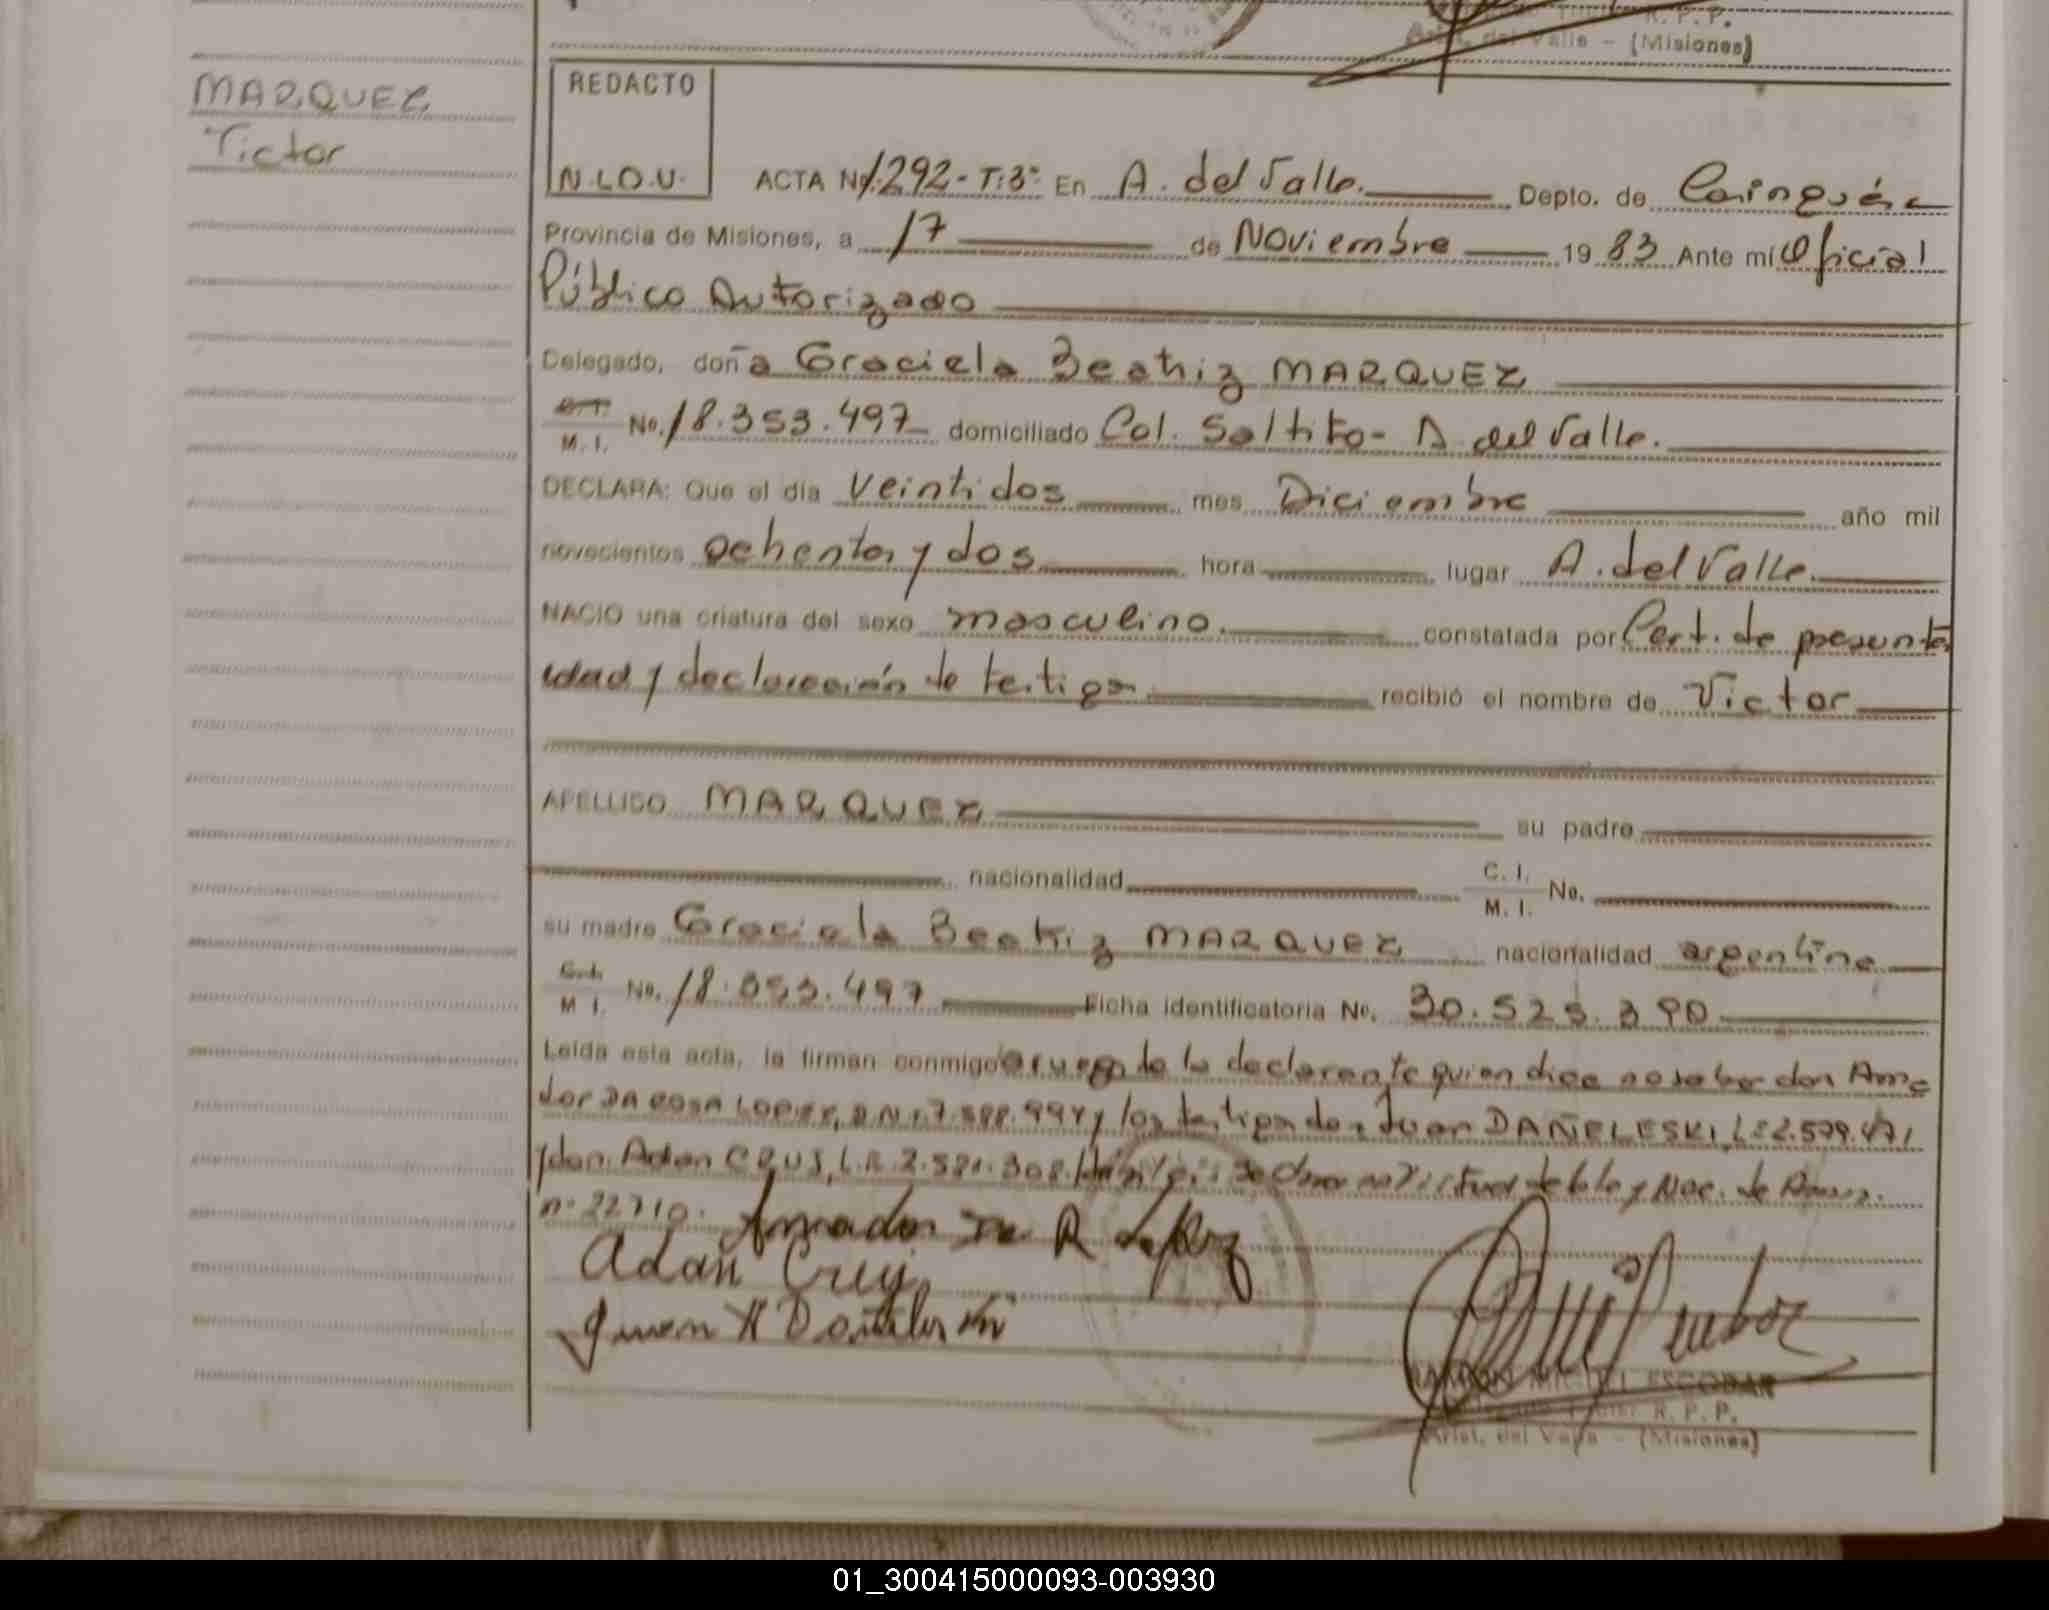 R. P. P.
Arist. del Valle - (Misiones)
MARQUEZ
Victor
REDACTO
N.L.O.U.
ACTA Nº 1.292-T:3º En A. del Valle. Depto. de Cainguás
Provincia de Misiones, a 17 de Noviembre 1983 Ante mí Oficial
Público Autorizado
Delegado, doña Graciela Beatriz MARQUEZ
M. I. No. 18.353.497 domiciliado Col. Saltito - A. del Valle.
DECLARA: Que el día veintidos mes Diciembre año mil
novecientos ochenta y dos hora lugar A. del Valle.
NACIO una criatura del sexo masculino. constatada por Cert. de presunta
edad y declaración de testigos recibió el nombre de Victor
APELLIDO MARQUEZ su padre
nacionalidad C. I. M. I. No.
su madre Graciela Beatriz MARQUEZ nacionalidad argentina
M. I. No. 18.353.497 Ficha identificatoria No. 30.525.390
Leída esta acta, la firman conmigo a ruego de la declarante quien dice no saber don Ama
dor DA ROSA LOPEZ, D.N.I. 7.588.994 y los testigos don Juan DAÑELESKI, L.E 2.579.471
y don Adan CRUS, L.E. 2.581.308. en virtud de la ley Nac. de Amn.
nº 22710.
Amador Da R Lopez
Adan Cruz
Juan Dañeleski
RAMON MIGUEL ESCOBAR
R. P. P.
Arist. del Valle - (Misiones)
01_300415000093-003930